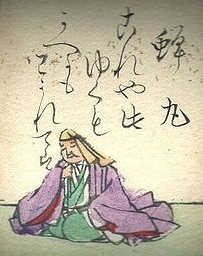 蝉丸
これや此
ゆくも
かへるも
わかれては